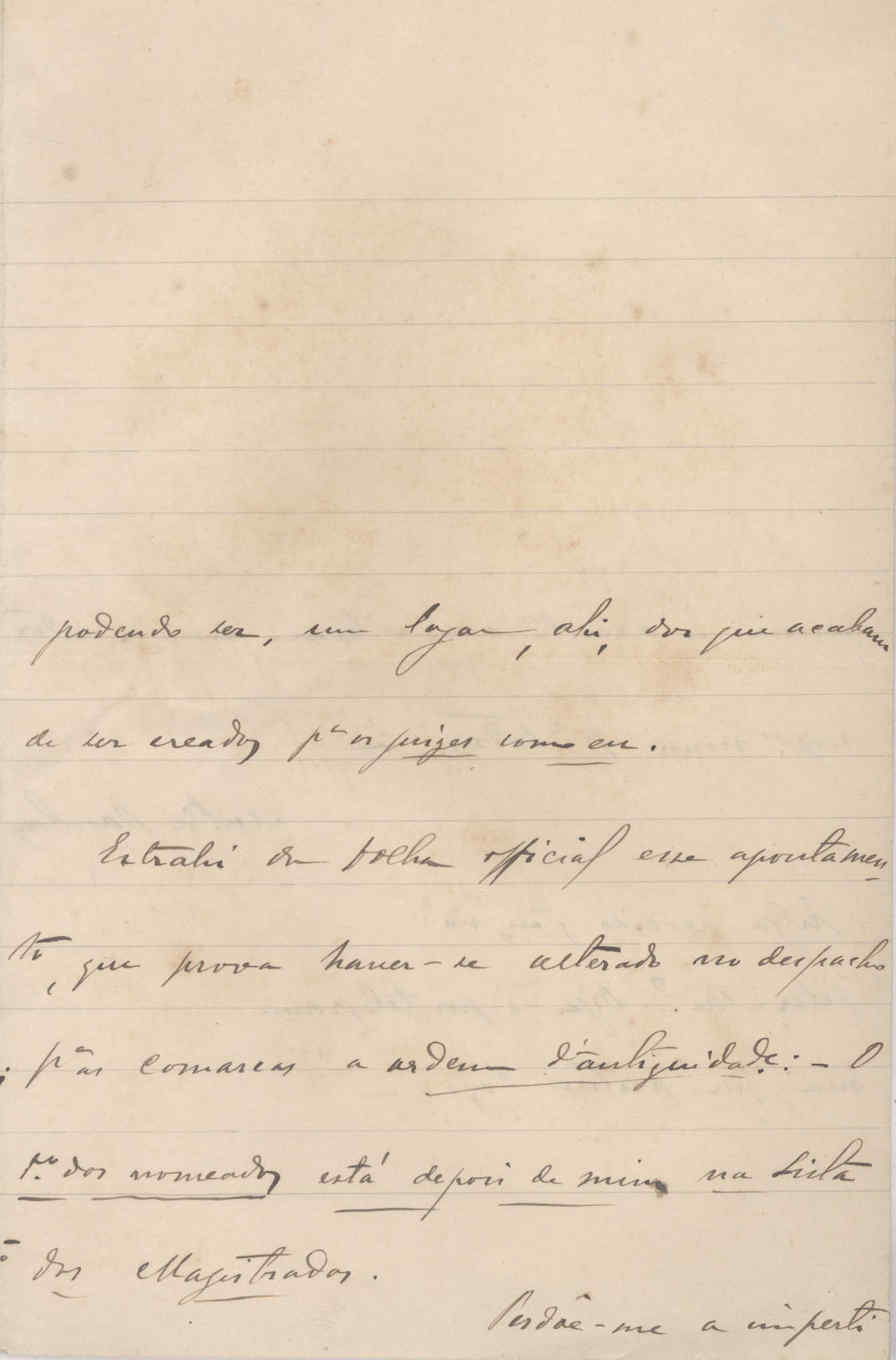 podendo ser, um logar, ahi, dos que acabam
de ser creados pª os juizes como eu.
Extrahi da folha official esse apontamen-
to, que prova haver-se alterado no despacho
pª as comarcas a ordem d'antiguidade: - O
1.º dos nomeados está depois de mim na Lista
dos Magistrados.
Perdôe-me a imperti